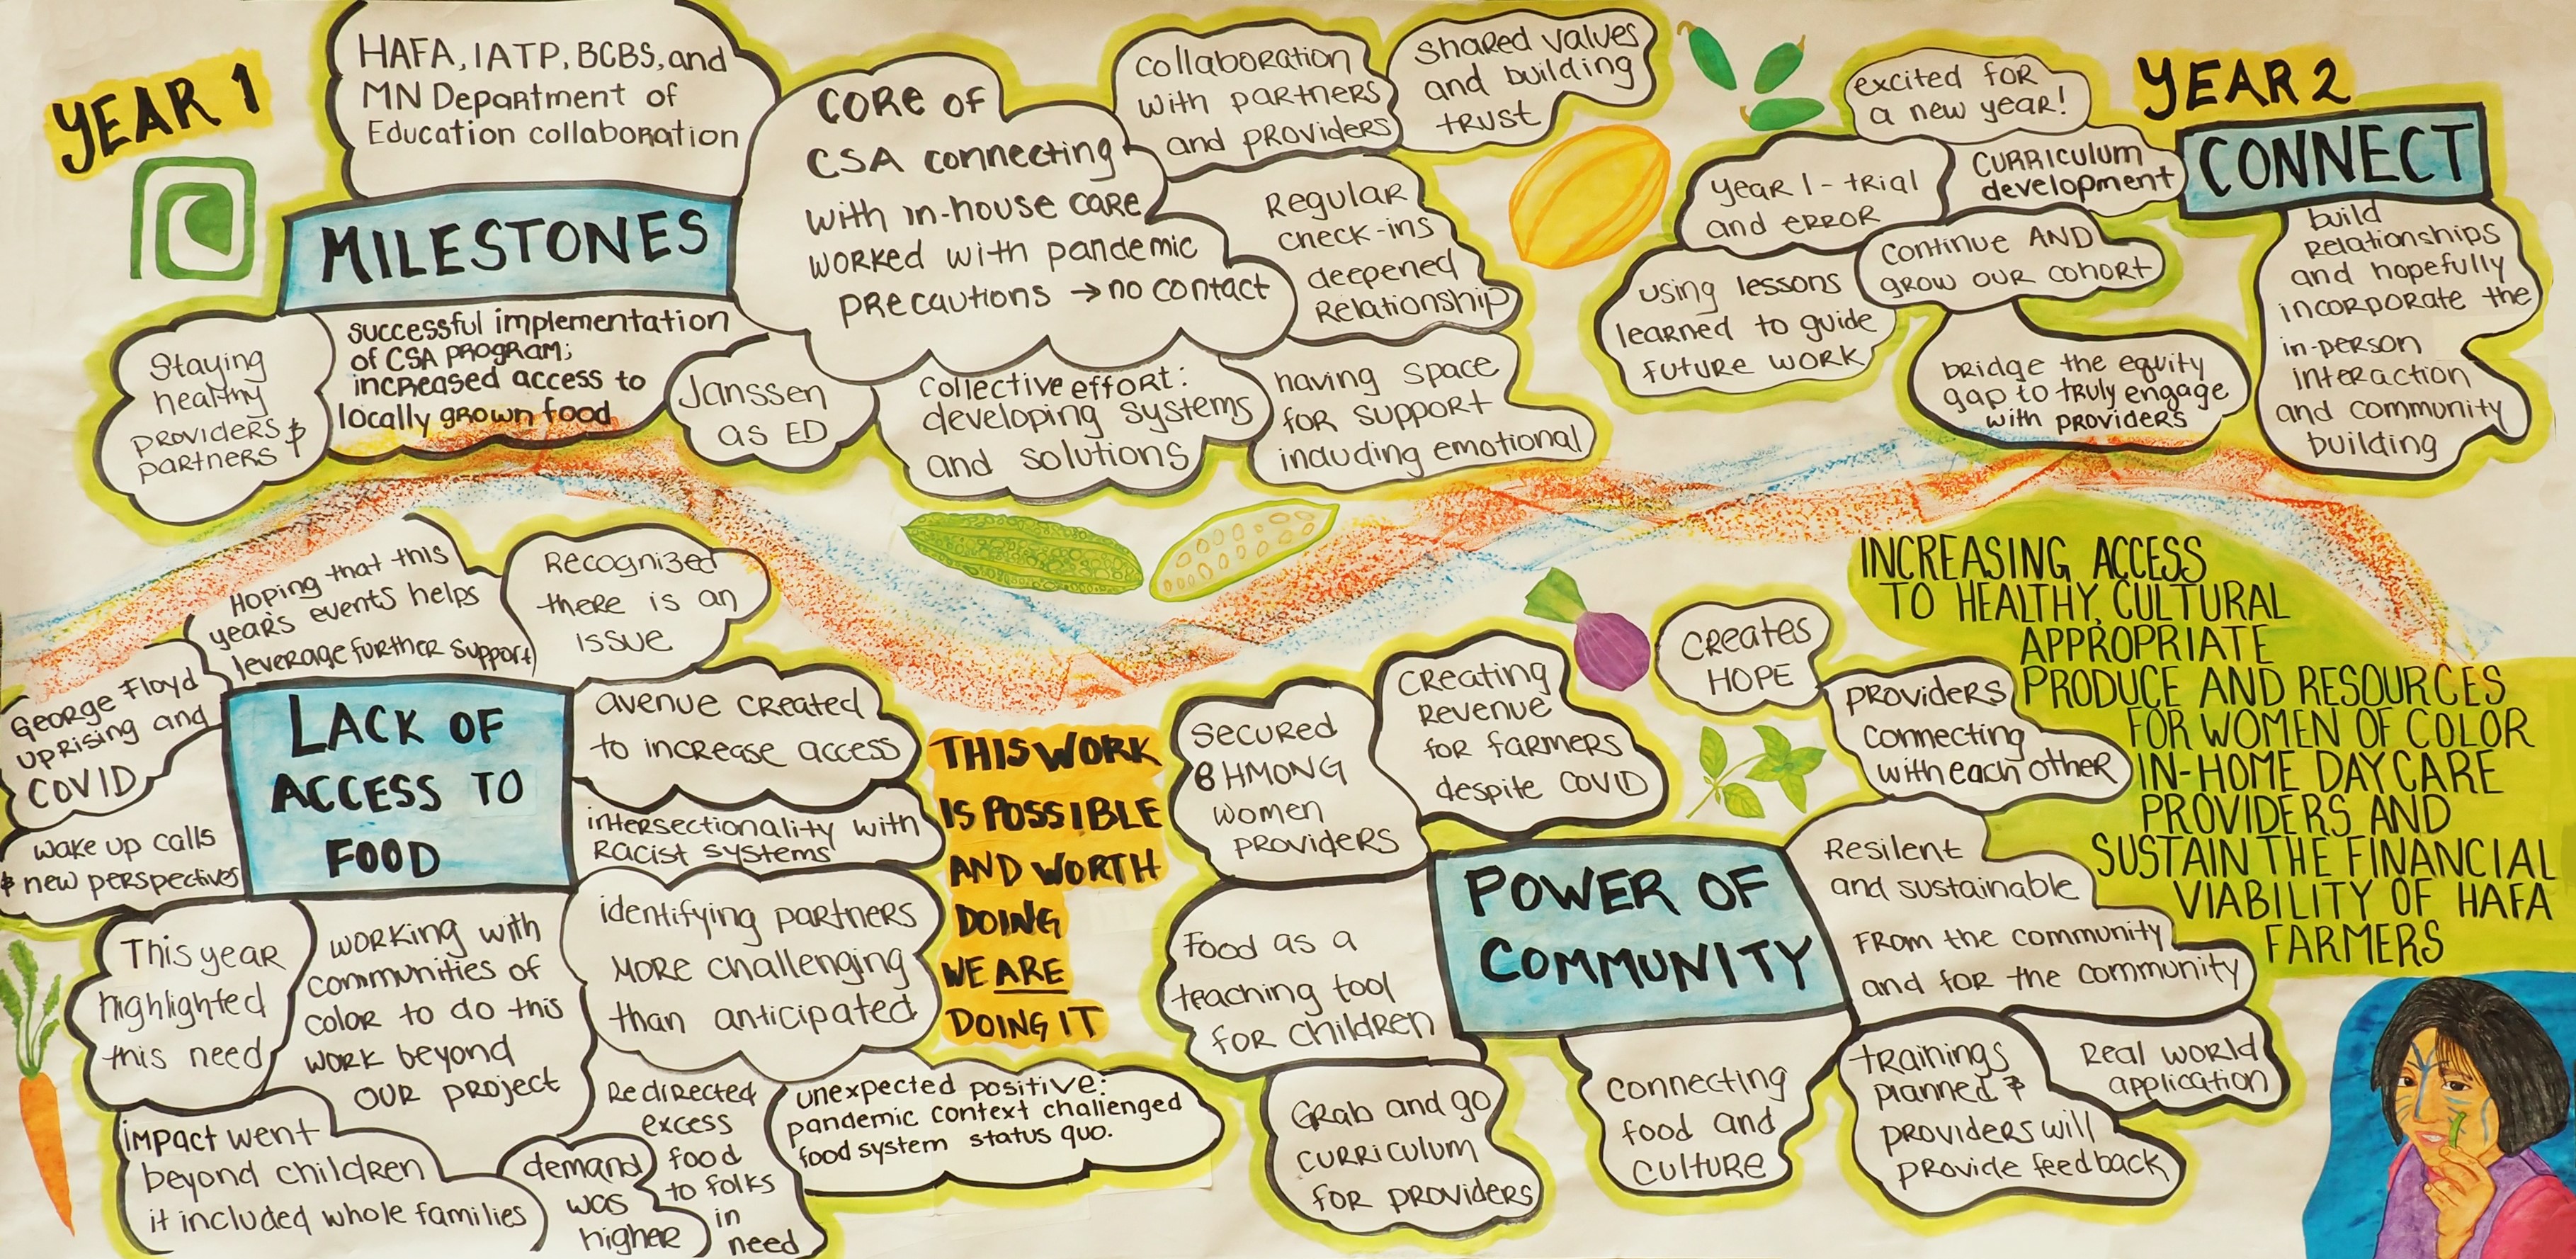 YEAR 1
HAFA, IATP, BCBS, and
MN Department of
Education collaboration
MILESTONES
Staying
healthy
providers &
partners
successful implementation
of CSA program;
increased access to
locally grown food
Janssen
as ED
CORE OF
CSA connecting
with in-house care
worked with pandemic
precautions → no contact
collaboration
with partners
and providers
shared values
and building
trust
Regular
check-ins
deepened
Relationship
collective effort:
developing systems
and solutions
having space
for support
including emotional
YEAR 2
CONNECT
excited for
a new year!
year 1 - trial
and error
curriculum
development
using lessons
learned to guide
future work
continue AND
grow our cohort
bridge the equity
gap to truly engage
with providers
build
relationships
and hopefully
incorporate the
in-person
interaction
and community
building
Hoping that this
years events helps
leverage further support
Recognized
there is an
issue
George Floyd
uprising and
COVID
LACK OF
ACCESS TO
FOOD
avenue created
to increase access
intersectionality with
racist systems
wake up calls
& new perspectives
This year
highlighted
this need
working with
communities of
color to do this
work beyond
our project
identifying partners
more challenging
than anticipated
impact went
beyond children
it included whole families
demand
was
higher
Redirected
excess
food
to folks
in
need
unexpected positive:
pandemic context challenged
food system status quo.
THIS WORK
IS POSSIBLE
AND WORTH
DOING
WE ARE
DOING IT
secured
8 HMONG
women
providers
creating
revenue
for farmers
despite COVID
creates
HOPE
providers
connecting
with each other
POWER OF
COMMUNITY
Food as a
teaching tool
for children
Grab and go
curriculum
for providers
connecting
food and
culture
Resilent
and sustainable
from the community
and for the community
trainings
planned &
providers will
provide feedback
Real world
application
INCREASING ACCESS
TO HEALTHY, CULTURAL
APPROPRIATE
PRODUCE AND RESOURCES
FOR WOMEN OF COLOR
IN-HOME DAYCARE
PROVIDERS AND
SUSTAIN THE FINANCIAL
VIABILITY OF HAFA
FARMERS